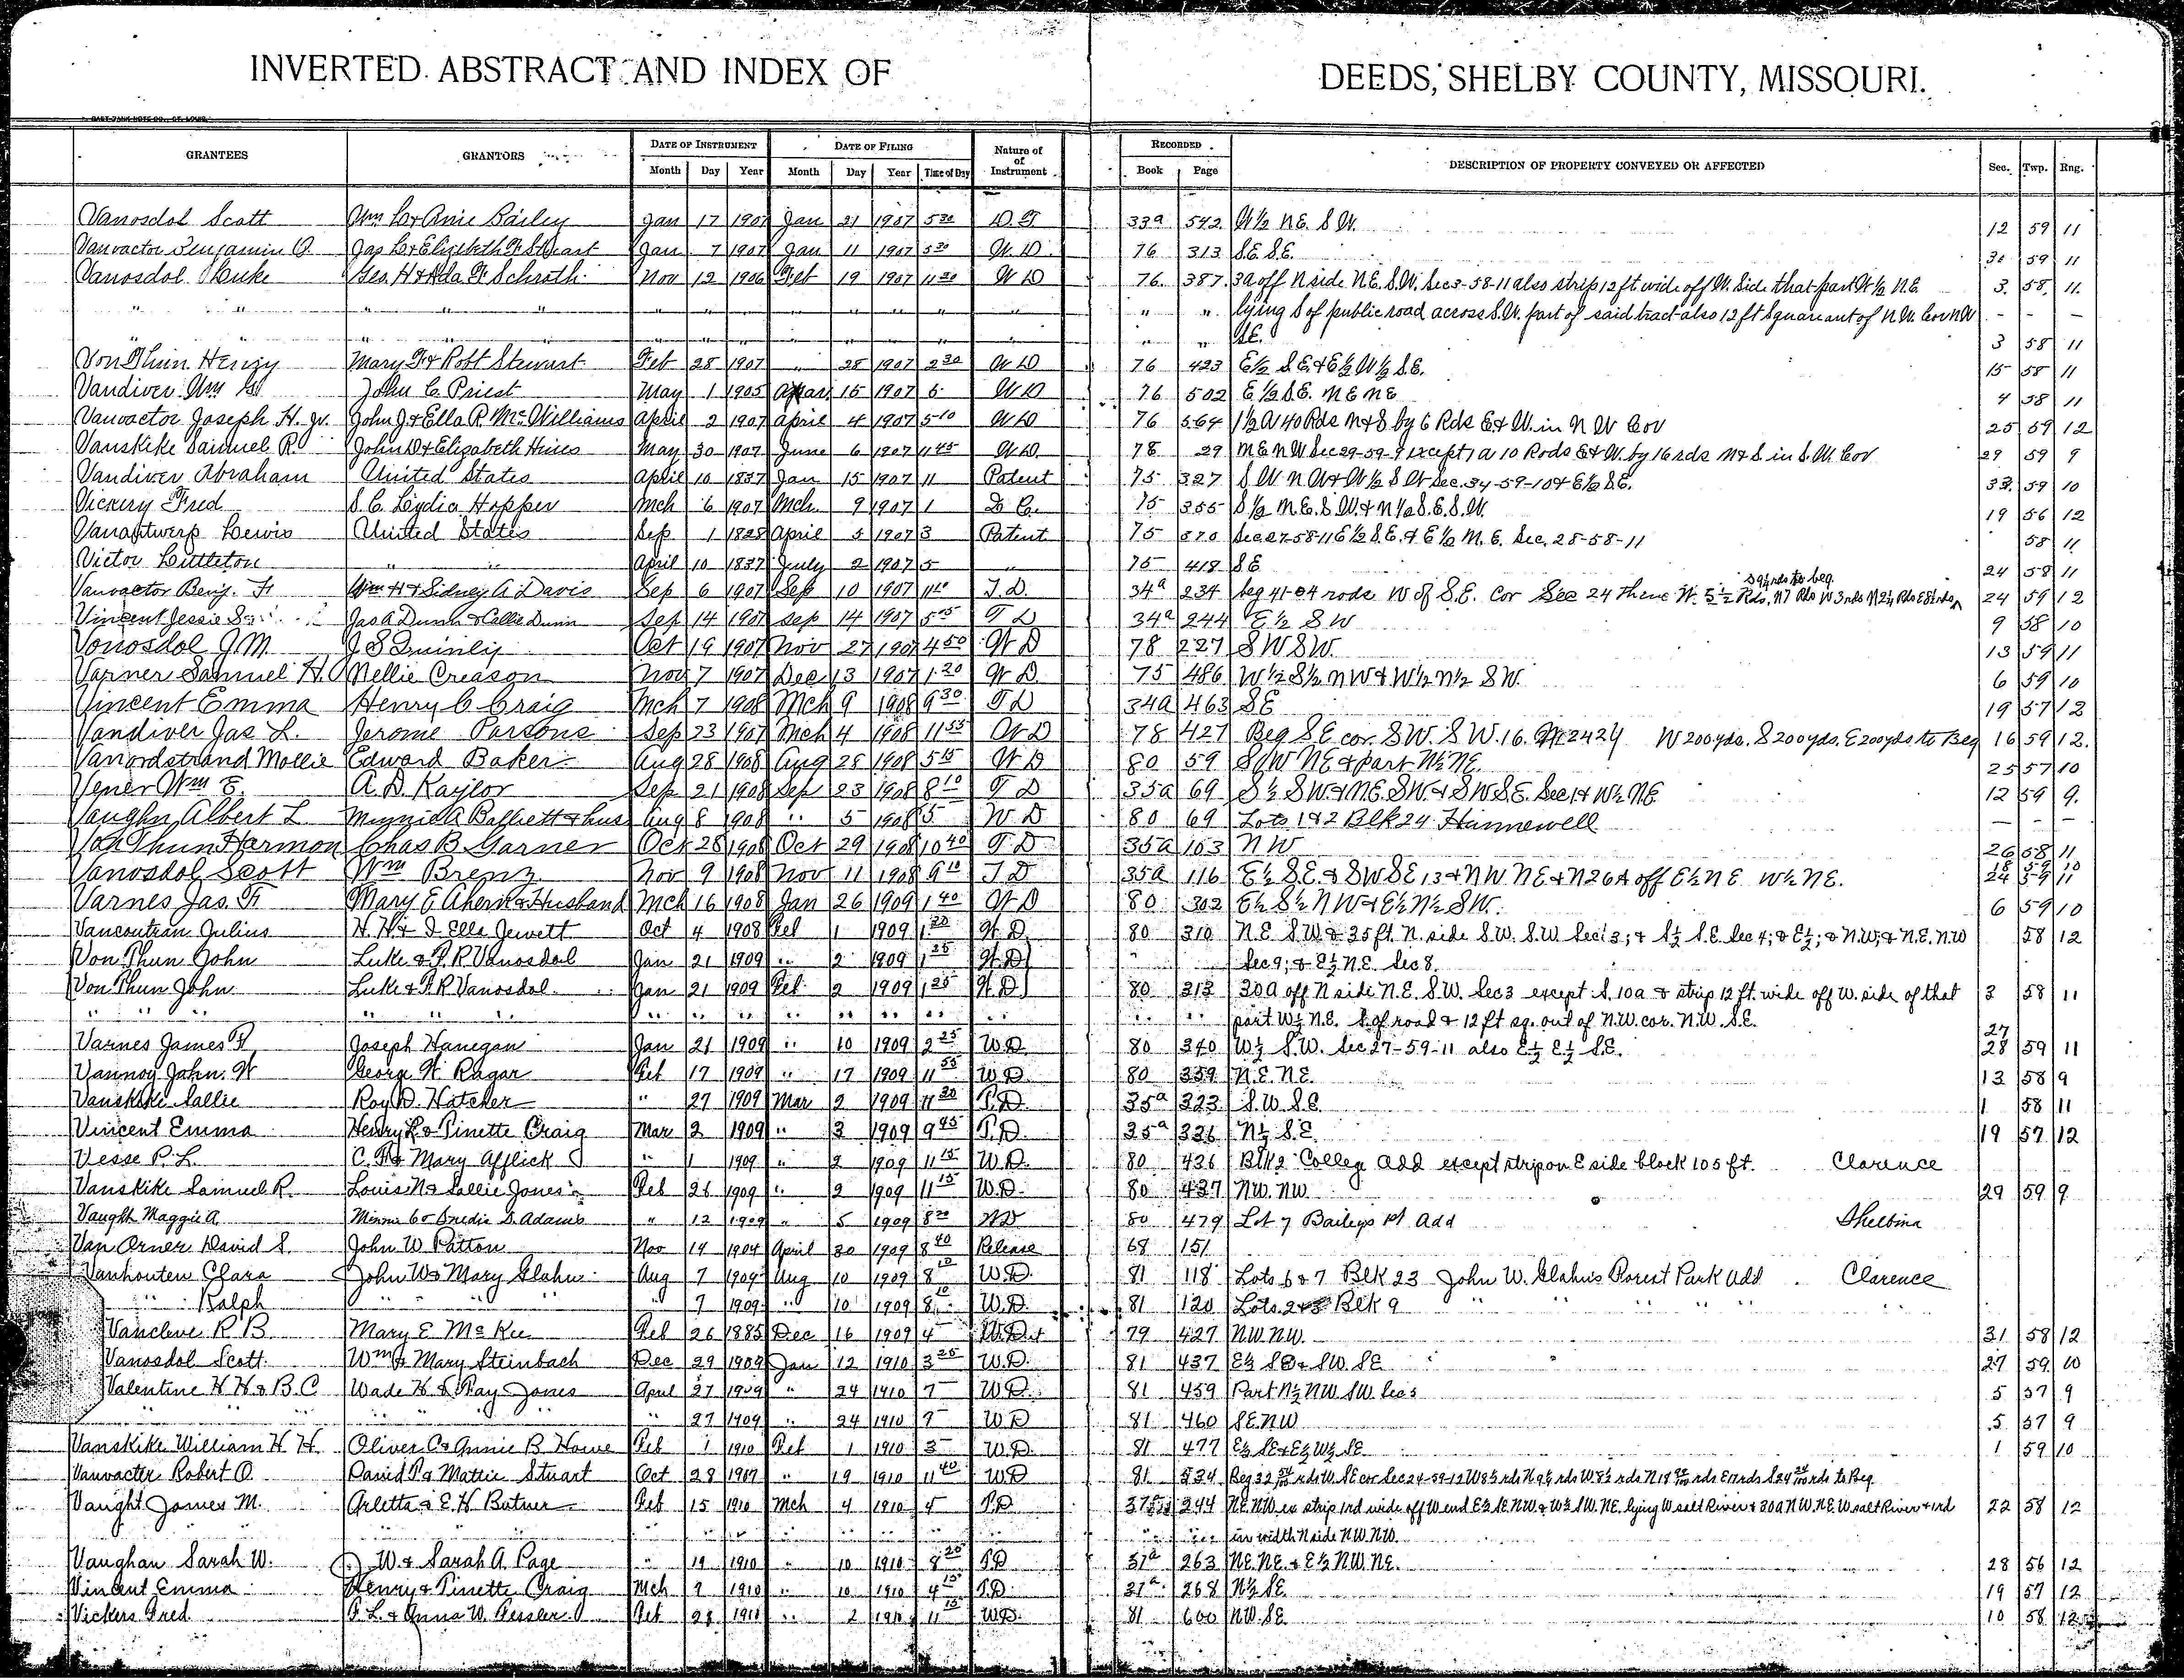 INVERTED ABSTRACT AND INDEX OF DEEDS, SHELBY COUNTY, MISSOURI.
GRANTEES GRANTORS DATE OF INSTRUMENT DATE OF FILING Nature of of Instrument RECORDED DESCRIPTION OF PROPERTY CONVEYED OR AFFECTED Sec. Twp. Rng.
Month Day Year Month Day Year Time of Day Book Page
Vanosdol Scott Wm L & Anie Bailey Jan 17 1907 Jan 21 1907 5 30 D. T. 33a 542 W ½ N.E. S.W. 12 59 11
Vanvactor Benjamin O. Jas L & Elizabeth F Stuart Jan 7 1907 Jan 11 1907 5 30 W. D. 76 313 S.E. S.E. 59 11
Vanosdol Luke Geo. H & Ada F Schroth Nov 12 1906 Feb 19 1907 11 20 W D 76. 387. 30 off N side N.E. S.W. Sec 3-58-11 also strip 12 ft wide off W. Side that part W ½ N.E. 3. 58. 11.
" " " " " " lying S of public road across S.W. part of said tract also 12 ft Square out of N.W. Cor N.W - - -
" " S.E. 3 58 11
Von Thun Henry Mary F & Robt Stewart Feb 28 1907 " 28 1907 2 30 W D 76 423 E ½ S.E. & E ½ W ½ S.E. 15 58 11
Vandiver Wm John C. Priest May 1 1905 Mar 15 1907 5 W D 76 502 E ½ S.E. N E N E 4 58 11
Vanvactor Joseph H. Jr. John J. & Ella R. McWilliams April 2 1907 April 4 1907 5 10 W D 76 564 1½ A 40 Rds N & S by 6 Rds E & W. in N W Cor 25 59 12
Vanskike Samuel R. John D & Elizabeth Hines May 30 1907 June 6 1907 11 45 W D. 78 29 N E N W Sec 29-59-9 except 1 a 10 Rods E & W. by 16 rds N & S in S.W. Cor 29 59 9
Vandiver Abraham United States April 10 1837 Jan 15 1907 11 Patent 75 327 S W N W & W ½ S W Sec. 34-59-10 & E ½ S.E. 33. 59 10
Vickery Fred S. C. Lydia Hopper Mch 6 1907 Mch. 9 1907 1 75 355 S ½ N.E. S W. & N ½ S.E. S.W. 19 56 12
Vanantwerp Lewis United States Sep 1 April 5 1907 3 Patent 75 370 Sec 27-58-11 E ½ S.E. & E ½ N. E. Sec. 28-58-11 58 11
Victor Littleton " " April 10 1837 July 2 1907 5 " 75 418 S E 24 58 11
Vanvactor Benj. F. Wm H & Sidney A. Davis Sep 6 1907 Sep 10 1907 T. D. 34a 234 beg 41-04 rods W of S.E. Cor Sec 24 thene W. 5½ Rds, N 7 Rds W 3 rds N 2½ Rds E 8½ rds S 9½ rds to beg. 24 59 12
Vincent Jessie S. Jas A Dunn & Callie Dunn Sep 14 1907 Sep 14 1907 5 15 T D 34a 244 E ½ S W 9 58 10
Vonosdol J.M. J S Quinly Oct 19 1907 Nov 27 1907 4 50 W D 78 227 S W S W. 13 59 11
Varner Samuel H. Nellie Creason Nov 7 1907 Dec 13 1907 1 20 W D. 75 486 W ½ S ½ N W & W ½ N ½ S W. 6 59 10
Vincent Emma Henry C Craig Mch 7 1908 Mch 9 1908 9 30 T D 34a 463 S E 19 57 12
Vandiver Jas L. Jerome Parsons Sep 23 1907 Mch 4 1908 11 55 W D 78 427 Beg S E cor. S W. S W. 16. W 200 yds. S 200 yds. E 200 yds to Beg 16 59 12.
Vanordstrand Mollie Edward Baker Aug 28 1908 Aug 28 1908 5 15 W D 80 59 S W N E & part N ½ N E. 25 57 10
Vener Wm E. A. D Kaylor Sep 21 1908 Sep 23 1908 8 10 T D 35a 69 S ½ S W & N.E. S W. & S W S E Sec 1 & W ½ N E 12 59 9.
Vaughn Albert L Minnie A & hus Aug 8 1908 " 5 1908 5 W D 80 69 Lots 1 & 2 Blk 24 Hunnewell - - -
Von Thun Harmon Chas B Garner Oct 28 1908 Oct 29 1908 10 40 T D 35a 103 N W 26 58 11
Vanosdol Scott Wm Brenz Nov 9 1908 Nov 11 1908 9 10 T D 35a 116 E ½ S.E. & S W S E 13 & N W N E & N 26 A off E ½ N E W ½ N E. 24 59 11
Varnes Jas. F. Mary E Ahern & Husband Mch 16 1908 Jan 26 1909 1 40 W D 80 302 E ½ S ½ N W & E ½ N ½ S W. 6 59 10
Vancoutran Julius H. H. & I Ella Jewett Oct 4 1908 Feb 1 1909 1 20 W D 80 310 N.E. S.W. & 35 ft. N. side S.W. S.W Sec 3; & S ½ S.E. Sec 4; & E ½; & N.W; & N.E. N.W 58 12
Von Thun John Luke & P. R Vanosdol Jan 21 1909 " 2 1909 1 25 W. D " Sec 9; & E ½ N.E. Sec 8.
Von Thun John Luke & P. R Vanosdol Jan 21 1909 Feb 2 1909 1 25 W. D 80 313 30 a off N side N.E. S.W. Sec 3 except S. 10 a & strip 12 ft. wide off W. side of that 3 58 11
" " " " " " " " " " " " " " " part W ½ N.E. S. of road & 12 ft sq. out of N.W. cor. N.W. S.E.
Varnes James F. Joseph Hanegan Jan 21 1909 " 10 1909 2 25 W.D. 80 340 W ½ S.W. Sec 27-59-11 also E ½ E ½ S.E. 27 28 59 11
Vannoy John. W George W. Ragar Feb 17 1909 " 17 1909 11 50 W D 80 359 N.E. N.E. 13 58 9
Vanskike Sallie Roy D. Hatcher " 27 1909 Mar 2 1909 11 20 T. D. 35a 323 S.W. S.E. 1 58 11
Vincent Emma Henry L & Pinette Craig Mar 2 1909 " 3 1909 9 45 T. D. 35a 326 N ½ S.E. 19 57 12
Vesse P. L. C. F. & Mary Afflick " 1 1909 " 2 1909 11 15 W.D. 80 436 Blk 2 Colleg add except strip on E side block 105 ft. Clarence
Vanskike Samuel R. Louis N & Sallie Jones Feb 26 1909 " 2 1909 11 15 W.D. 80 437 N.W. N.W. 29 59 9
Vaught Maggie A Adams " 12 1909 " 5 1909 8 30 W D 80 479 Lot 7 Baileys 1st Add Shelbina
Van Orner David S. John W Patton Nov 14 1904 April 30 1909 8 40 Release 68 151
Vanhouten Clara John W & Mary Glahn Aug 7 1909 Aug 10 1909 8 10 W.D. 81 118 Lots 6 & 7 Blk 23 John W. Glahn's Forest Park add Clarence
" Ralph " " " 7 1909 " 10 1909 8 10 W.D. 81 120 Lots 2 & 3 Blk 9 " " " "
Vancleve R B Mary E McKee Feb 26 1885 Dec 16 1909 4 W.D. 79 427 N.W. N.W. 31 58 12
Vanosdol Scott Wm & Mary Steinbach Dec 29 1909 Jan 12 1910 3 25 W.D. 81 437 E ½ S E & S W. S E 27 59 10
Valentine H H & B. C Wade H & Fay Jones April 27 1909 " 24 1910 7 W D. 81 459 Part N ½ N W S W. Sec 5 5 57 9
" " " " " 27 1909 " 24 1910 7 W D 81 460 S E N W 5 57 9
Vanskike William H H. Oliver C & Annie B. Howe Feb 1 1910 Feb 1 1910 3 W.D. 81 477 E ½ S E & E ½ W ½ S E 1 59 10
Vanvacter Robert O. David P & Mattie Stuart Oct 28 1909 " 19 1910 11 40 W D 81 534 Beg 32 rds W. S E cor Sec 24-59-12 W 8½ rds N 9½ rds W 8½ rds N 18 rds E 17 rds S 24 rds to Beg
Vaught James M. Arletta & E. H Butner Feb 15 1910 Mch 4 1910 4 T. D 37a 244 N.E. N.W ex strip 1 rd wide off W end E ½ S.E. N.W. & W ½ S.W. N.E. lying W salt River & 30 a N W. N.E. W salt River & 1 rd 22 58 12
" " " " " in width N side N.W. N.W.
Vaughan Sarah W. J. W. & Sarah A. Page " 19 1910 " 10 1910 8 20 T.D 37a 263 N.E. N.E. & E ½ N.W. N.E. 28 56 12
Vincent Emma Henry & Pinette Craig Mch 9 1910 " 10 1910 4 15 T.D. 37a 268 N ½ S.E. 19 57 12
Vickers Fred P. L. & Anna W. Pessler Feb 28 1910 " 2 1910 11 15 W D. 81 600 N.W. S.E. 10 58 12